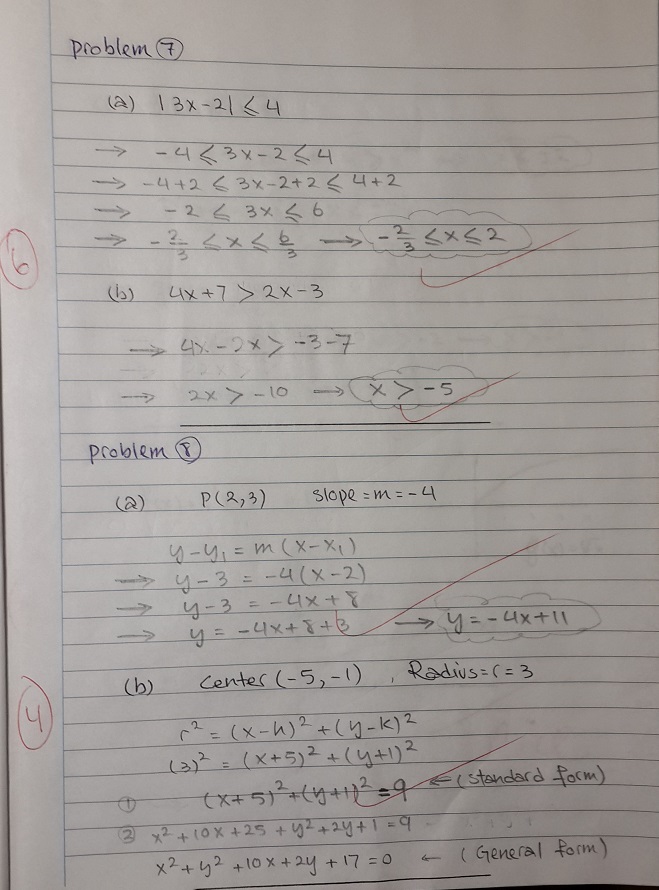 Problem ⑦
(a) |3x-2| ⩽ 4
→ -4 ⩽ 3x-2 ⩽ 4
→ -4+2 ⩽ 3x-2+2 ⩽ 4+2
→ -2 ⩽ 3x ⩽ 6
→ -2/3 ≤ x ≤ 6/3 → -2/3 ≤ x ≤ 2
6
(b) 4x+7 > 2x-3
→ 4x-2x > -3-7
→ 2x > -10 → x > -5
Problem ⑧
(a) P(2,3) slope = m = -4
y-y₁ = m(x-x₁)
→ y-3 = -4(x-2)
→ y-3 = -4x+8
→ y = -4x+8+3 → y = -4x+11
(b) center(-5,-1), Radius = r = 3
4
r² = (x-h)² + (y-k)²
(3)² = (x+5)² + (y+1)²
① (x+5)² + (y+1)² = 9 ← (standard form)
② x² + 10x + 25 + y² + 2y + 1 = 9
x² + y² + 10x + 2y + 17 = 0 ← (General form)